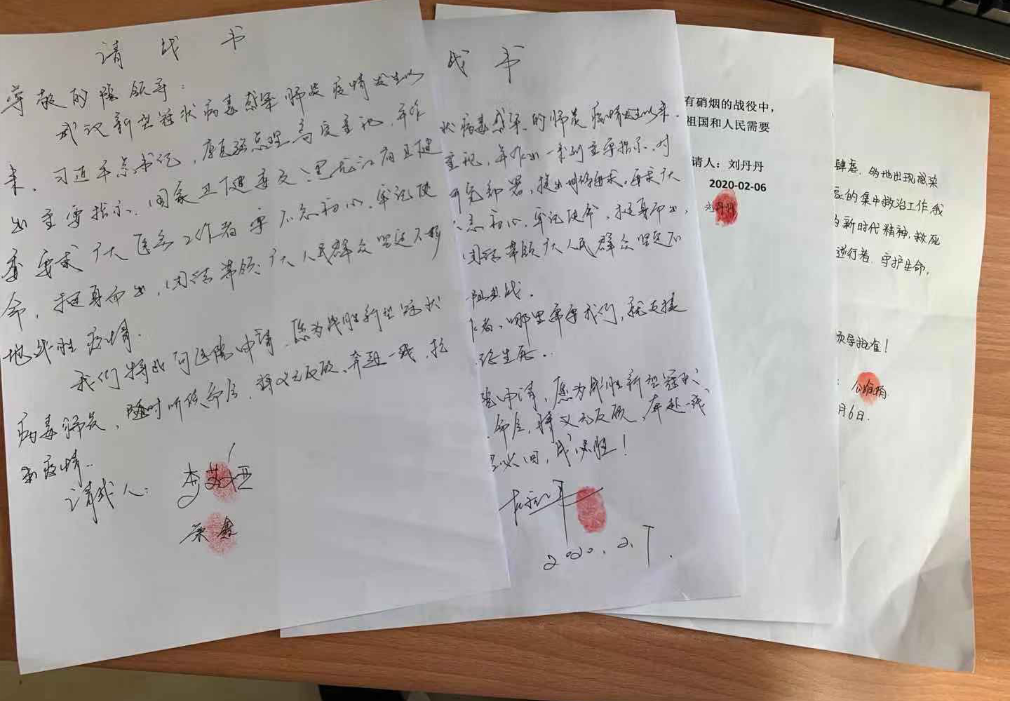 请战书
尊敬的院领导：
武汉新型冠状病毒感染肺炎疫情发生以
来，习近平总书记，李克强总理高度重视，并作
出重要指示，国家卫健委及黑龙江省卫健
委要求广大医务工作者要不忘初心，牢记使
命，挺身而出，团结带领广大人民群众坚定不移
地战胜疫情．
我们特此向医院申请，愿为战胜新型冠状
病毒肺炎，随时听候命令，将义无反顾，奔赴一线，抗
击疫情．
请战人：
战书
状病毒感染的肺炎疫情发生以来，
重视，并作出一系列重要指示，对
部署，提出明确要求，要求广
忘初心，牢记使命，挺身而出，
团结带领广大人民群众坚定不
阻击战．
哪里需要我们，就直接
论生死．
申请，愿为战胜新型冠状
命令，将义无反顾，奔赴一线
战必胜！
2020.2.7.
有硝烟的战役中，
祖国和人民需要
请人：刘丹丹
2020-02-06
肆虐，各地出现感染
的集中救治工作，我
新时代精神，救死
逆行者，守护生命，
领导批准！
月6日